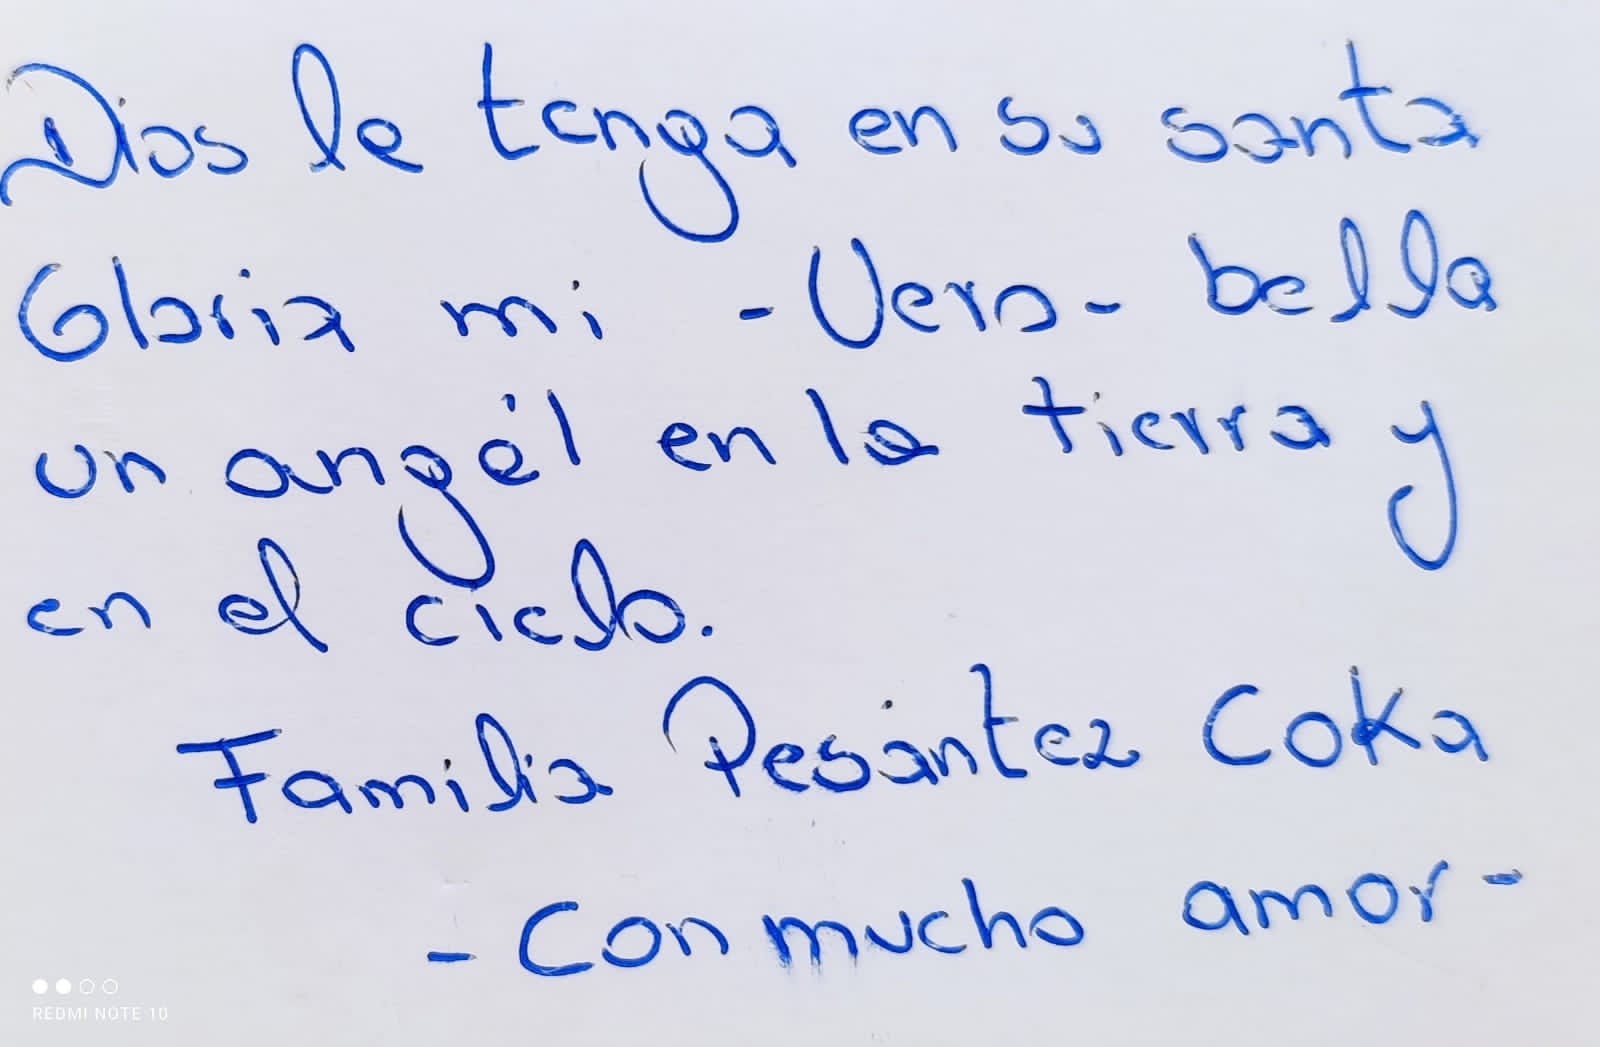 Dios le tenga en su santa
Gloria mi - Vero - bella
un angél en la tierra y
en el cielo.
Familia Pesántez Coka
- Con mucho amor -
REDMI NOTE 10